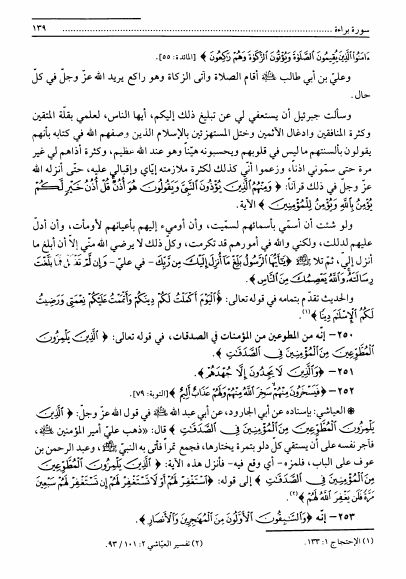 سورة براءة ........ ١٣٩
ءَامَنُوا الَّذِينَ يُقِيمُونَ الصَّلَوٰةَ وَيُؤْتُونَ الزَّكَوٰةَ وَهُمْ رَٰكِعُونَ ﴾ [المائدة: ٥٥].
وعليّ بن أبي طالب ﷺ أقام الصلاة وآتى الزكاة وهو راكع يريد الله عزّ وجلّ في كلّ
حال.
وسألت جبرئيل أن يستعفي لي عن تبليغ ذلك إليكم، أيها الناس، لعلمي بقلّة المتقين
وكثرة المنافقين وادغال الآثمين وختل المستهزئين بالإسلام الذين وصفهم الله في كتابه بأنهم
يقولون بألسنتهم ما ليس في قلوبهم ويحسبونه هيّناً وهو عند الله عظيم، وكثرة أذاهم لي غير
مرة حتى سمّوني اذناً، وزعموا أنّي كذلك لكثرة ملازمته إيّاي وإقبالي عليه، حتّى أنزل الله
عزّ وجلّ في ذلك قرآناً: ﴿ وَمِنْهُمُ الَّذِينَ يُؤْذُونَ النَّبِيَّ وَيَقُولُونَ هُوَ أُذُنٌ قُلْ أُذُنُ خَيْرٍ لَكُمْ
يُؤْمِنُ بِاللَّهِ وَيُؤْمِنُ لِلْمُؤْمِنِينَ ﴾ الآية.
ولو شئت أن أسمي بأسمائهم لسمّيت، وأن أوميء إليهم بأعيانهم لأومأت، وأن أدلّ
عليهم لدللت، ولكني والله في أمورهم قد تكرمت، وكلّ ذلك لا يرضي الله منّي إلّا أن أبلغ ما
أنزل إليّ، ثمّ تلا ﷺ ﴿ يَٰأَيُّهَا الرَّسُولُ بَلِّغْ مَا أُنزِلَ إِلَيْكَ مِن رَّبِّكَ - في عليّ - وَإِن لَّمْ تَفْعَلْ فَمَا بَلَّغْتَ
رِسَالَتَهُ وَاللَّهُ يَعْصِمُكَ مِنَ النَّاسِ ﴾.
والحديث تقدّم بتمامه في قوله تعالى: ﴿ الْيَوْمَ أَكْمَلْتُ لَكُمْ دِينَكُمْ وَأَتْمَمْتُ عَلَيْكُمْ نِعْمَتِي وَرَضِيتُ
لَكُمُ الْإِسْلَامَ دِينًا ﴾(١).
٢٥٠ - إنّه من المطوعين من المؤمنات في الصدقات، في قوله تعالى: ﴿ الَّذِينَ يَلْمِزُونَ
الْمُطَّوِّعِينَ مِنَ الْمُؤْمِنِينَ فِي الصَّدَقَٰتِ ﴾.
٢٥١ - ﴿ وَالَّذِينَ لَا يَجِدُونَ إِلَّا جُهْدَهُمْ ﴾.
٢٥٢ - ﴿ فَيَسْخَرُونَ مِنْهُمْ سَخِرَ اللَّهُ مِنْهُمْ وَلَهُمْ عَذَابٌ أَلِيمٌ ﴾ [التوبة: ٧٩].
❁ العياشي: بإسناده عن أبي الجارود، عن أبي عبد الله ﷺ في قول الله عزّ وجلّ: ﴿ الَّذِينَ
يَلْمِزُونَ الْمُطَّوِّعِينَ مِنَ الْمُؤْمِنِينَ فِي الصَّدَقَٰتِ ﴾ قال: «ذهب عليّ أمير المؤمنين ﷺ،
فآجر نفسه على أن يستقي كلّ دلو بتمرة يختارها، فجمع تمراً فأتى به النبيّ ﷺ، وعبد الرحمن بن
عوف على الباب، فلمزه - أي وقع فيه - فأنزل هذه الآية: ﴿ الَّذِينَ يَلْمِزُونَ الْمُطَّوِّعِينَ
مِنَ الْمُؤْمِنِينَ فِي الصَّدَقَٰتِ ﴾ إلى قوله: ﴿ اسْتَغْفِرْ لَهُمْ أَوْ لَا تَسْتَغْفِرْ لَهُمْ إِن تَسْتَغْفِرْ لَهُمْ سَبْعِينَ
مَرَّةً فَلَن يَغْفِرَ اللَّهُ لَهُمْ ﴾(٢).
٢٥٣ - إنّه ﴿ وَالسَّٰبِقُونَ الْأَوَّلُونَ مِنَ الْمُهَٰجِرِينَ وَالْأَنصَارِ ﴾.
(١) الإحتجاج ١: ١٣٣. (٢) تفسير العيّاشي ٢: ١٠١ / ٩٣.